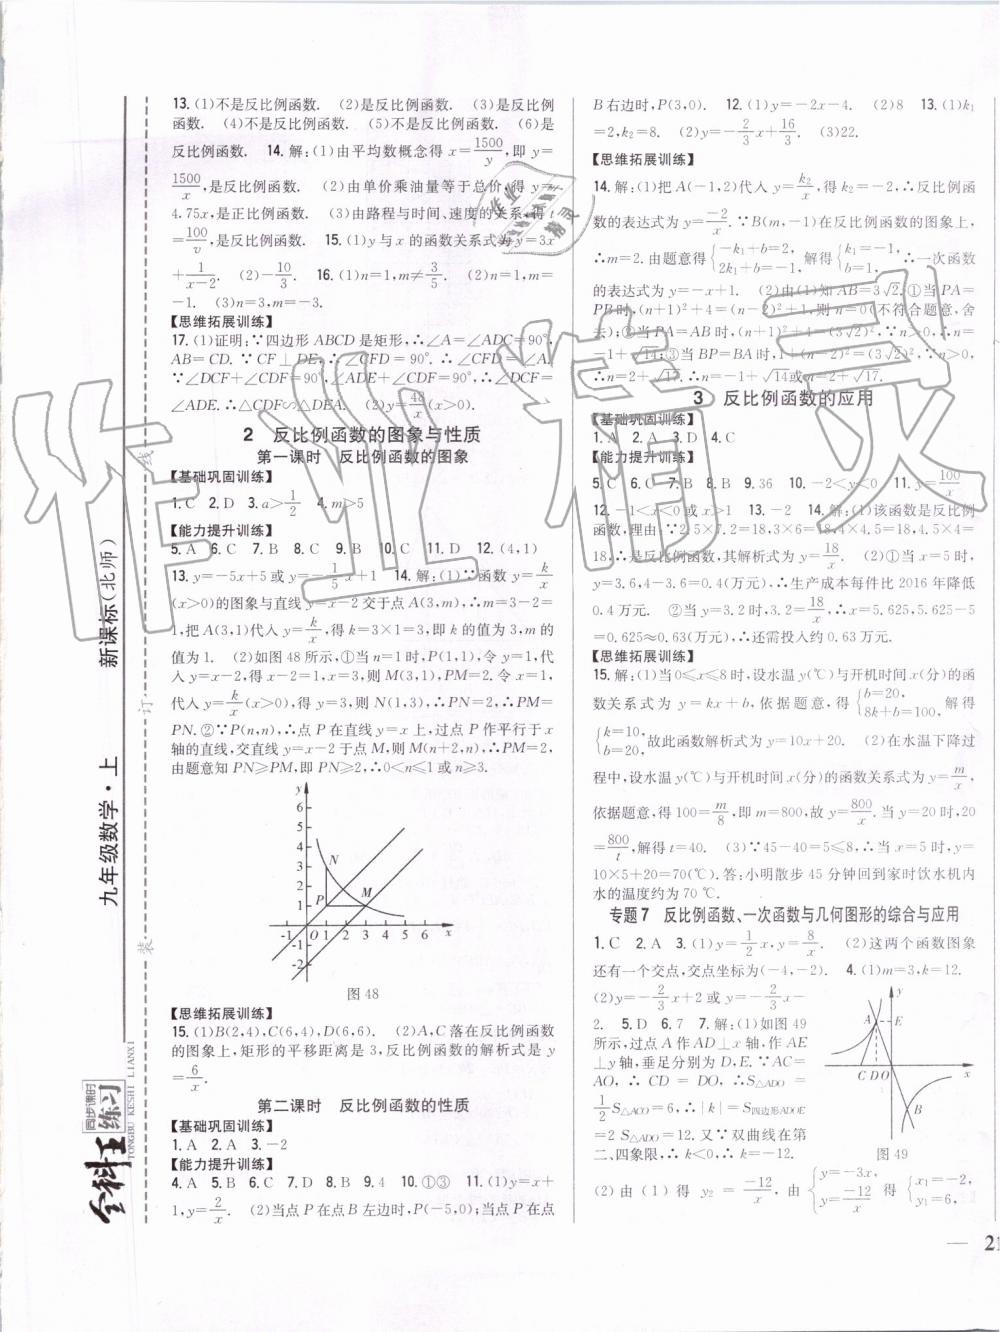 13. (1)不是反比例函数. (2)是反比例函数. (3)是反比例
函数. (4)不是反比例函数. (5)不是反比例函数. (6)是
反比例函数. 14. 解:(1)由平均数概念得 x=1500/y,即 y=
1500/x,是反比例函数. (2)由单价乘油量等于总价,得 y=
4.75x,是正比例函数. (3)由路程与时间、速度的关系,得 t
=100/v,是反比例函数. 15. (1)y与x的函数关系式为 y=3x
+1/(x-2). (2)-10/3 16. (1)n=1,m≠3/5. (2)n=1,m=
-1. (3)n=3,m=-3.
【思维拓展训练】
17. (1)证明:∵四边形 ABCD 是矩形,∴∠A=∠ADC=90°,
AB=CD. ∵CF⊥DE,∴∠CFD=90°. ∴∠CFD=∠A.
∵∠DCF+∠CDF=90°,∠ADE+∠CDF=90°,∴∠DCF=
∠ADE. ∴△CDF∽△DEA. (2)y=48/x(x>0).
2 反比例函数的图象与性质
第一课时 反比例函数的图象
【基础巩固训练】
1. C 2. D 3. a>1/2 4. m>5
【能力提升训练】
5. A 6. C 7. B 8. C 9. B 10. C 11. D 12. (4,1)
13. y=-5x+5或y=-1/5x+1 14. 解:(1)∵函数 y=k/x
(x>0)的图象与直线 y=x-2 交于点 A(3,m),∴m=3-2=
1,把 A(3,1)代入 y=k/x,得 k=3×1=3,即 k 的值为 3,m 的
值为 1. (2)如图 48 所示,①当 n=1 时,P(1,1),令 y=1,代
入 y=x-2,得 x-2=1,x=3,则 M(3,1),PM=2. 令 x=1,
代入 y=k/x(x>0),得 y=3,则 N(1,3),∴PN=2,∴PM=
PN. ②∵P(n,n),∴点 P 在直线 y=x 上,过点 P 作平行于 x
轴的直线,交直线 y=x-2 于点 M,则 M(n+2,n),∴PM=2,
由题意知 PN≥PM,即 PN≥2,∴0<n≤1 或 n≥3.
y
6
5
4
3 N
2
1 P M
-1 O 1 2 3 4 5 6 x
-1
-2
图 48
【思维拓展训练】
15. (1)B(2,4),C(6,4),D(6,6). (2)A,C 落在反比例函数
的图象上,矩形的平移距离是 3,反比例函数的解析式是 y
=6/x.
第二课时 反比例函数的性质
【基础巩固训练】
1. A 2. A 3. -2
【能力提升训练】
4. A 5. A 6. C 7. D 8. B 9. 4 10. ①③ 11. (1)y=x+
1,y=2/x. (2)当点 P 在点 B 左边时,P(-5,0);当点 P 在点
B 右边时,P(3,0). 12. (1)y=-2x-4. (2)8 13. (1)k₁
=2,k₂=8. (2)y=-2/3x+16/3. (3)22.
【思维拓展训练】
14. 解:(1)把 A(-1,2)代入 y=k₂/x,得 k₂=-2,∴反比例函
数的表达式为 y=-2/x. ∵B(m,-1)在反比例函数的图象上,
∴m=2. 由题意得{-k₁+b=2, 2k₁+b=-1, 解得{k₁=-1, b=1, ∴一次函数
的表达式为 y=-x+1. (2)由(1)知 AB=3√2. ①当 PA=
PB时,(n+1)²+4=(n-2)²+1,则 n=0(不符合题意,舍
去);②当 PA=AB 时,(n+1)²+4=(3√2)²,∵n>0,∴n=-
1+√14;③当 BP=BA 时,1+(n-2)²=(3√2)²,∵n>0,
∴n=2+√17. ∴n=-1+√14或n=2+√17.
3 反比例函数的应用
【基础巩固训练】
1. A 2. A 3. D 4. C
【能力提升训练】
5. C 6. C 7. B 8. B 9. 36 10. -2<y<0 11. y=100/x
12. -1<x<0 或 x>1 13. -2 14. 解:(1)该函数是反比例
函数,理由:∵2.5×7.2=18,3×6=18,4×4.5=18,4.5×4=
18,∴是反比例函数,其解析式为 y=18/x. (2)①当 x=5 时,
y=3.6,4-3.6=0.4(万元),∴生产成本每件比 2016 年降低
0.4 万元. ②当 y=3.2 时,3.2=18/x,∴x=5.625,5.625-5
=0.625≈0.63(万元),∴还需投入约 0.63 万元.
【思维拓展训练】
15. 解:(1)当 0≤x≤8 时,设水温 y(℃)与开机时间 x(分)的函
数关系式为 y=kx+b,依据题意,得{b=20, 8k+b=100, 解得
{k=10, b=20, 故此函数解析式为 y=10x+20. (2)在水温下降过
程中,设水温 y(℃)与开机时间 x(分)的函数关系式为 y=m/x,
依据题意,得 100=m/8,即 m=800,故 y=800/x. 当 y=20 时,20
=800/t,解得 t=40. (3)∵45-40=5≤8,∴当 x=5 时,y=
10×5+20=70(℃). 答:小明散步 45 分钟回到家时饮水机内
水的温度约为 70 ℃.
专题 7 反比例函数、一次函数与几何图形的综合与应用
1. C 2. A 3. (1)y=1/2x,y=8/x. (2)这两个函数图象
还有一个交点,交点坐标为(-4,-2). 4. (1)m=3,k=12.
(2)y=-2/3x+2 或 y=-2/3x-
2. 5. D 6. 7 7. 解:(1)如图 49
所示,过点 A 作 AD⊥x 轴,作 AE
⊥y 轴,垂足分别为 D,E. ∵AC=
AO,∴CD=DO,∴S△ADO=
1/2S△ACO=6,∴|k|=S四边形ADOE
=2S△ADO=12. 又∵双曲线在第
二、四象限,∴k<0,∴k=-12.
y
A E
C D O x
B
图 49
(2)由(1)得 y₂=-12/x,由{y=-3x, y=-12/x 得{x₁=-2, y₁=6,
21
九年级数学·上 新课标(北师)
全科王
同步课时
练习
TONGBU KESHI LIANXI
装 订 线
作业精灵
作业精灵